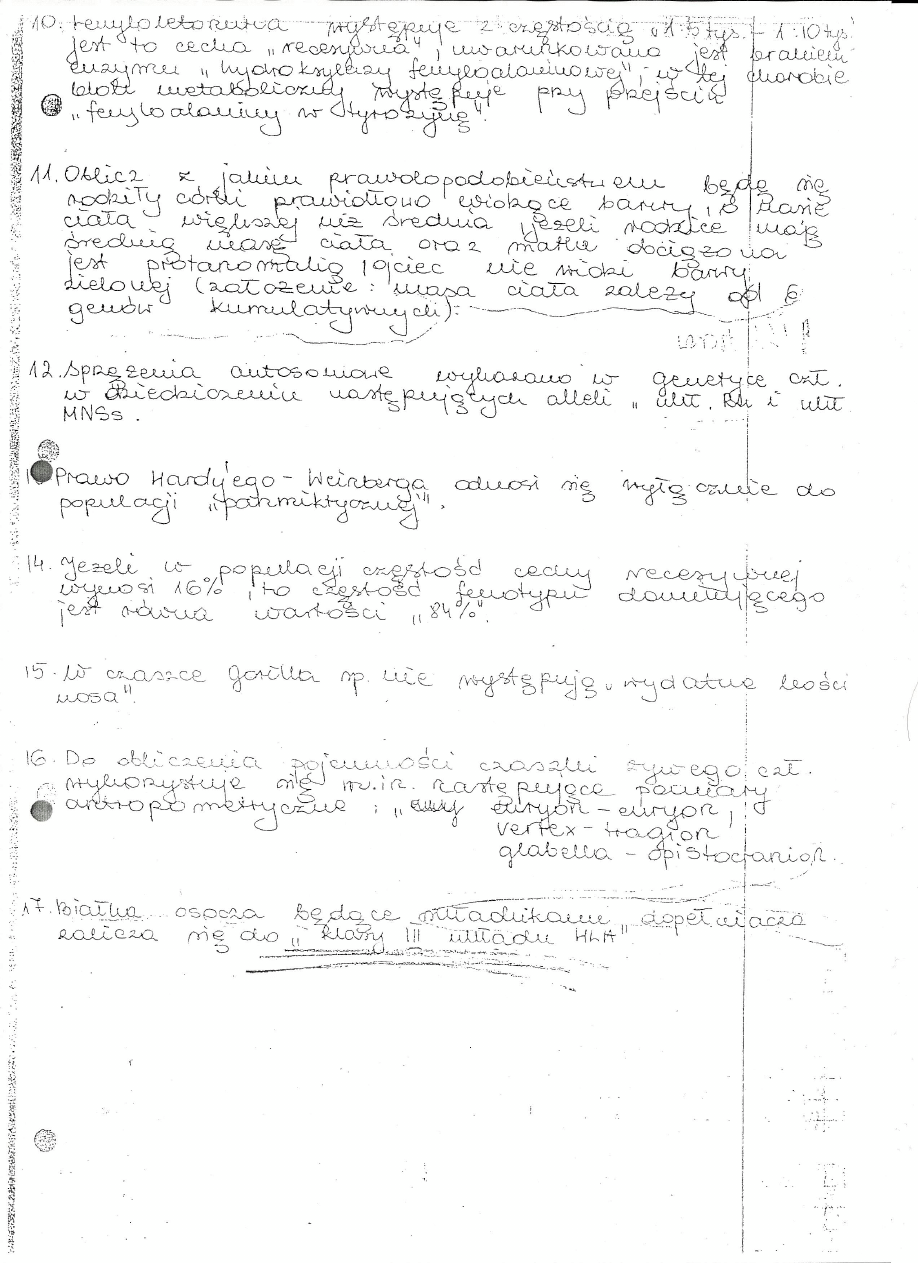 10. Fenyloketonuria występuje z częstością „1:5 tys. - 1:10 tys.
jest to cecha „recesywna", uwarunkowana jest brakiem
enzymu „hydroksylazy fenyloalaninowej", w tej chorobie
blok metaboliczny występuje przy przejściu
„fenyloalaniny w tyrozynę".
11. Oblicz z jakim prawdopodobieństwem będą się
rodziły córki prawidłowo widzące barwy, o masie
ciała większej niż średnia, jeżeli rodzice mają
średnią masę ciała oraz matka obciążona
jest protanomalią, ojciec nie widzi barwy
zielonej (założenie: masa ciała zależy od 6
genów kumulatywnych).
12. Sprzężenia autosomowe wykazano w genetyce czł.
w dziedziczeniu następujących alleli „ukł. Rh i ukł
MNSs.
Prawo Hardy'ego - Weinberga odnosi się wyłącznie do
populacji „panmiktycznej".
14. Jeżeli w populacji częstość cechy recesywnej
wynosi 16%, to częstość fenotypu dominującego
jest równa wartości „84%".
15. W czaszce Gorilla sp. nie występują „wydatne kości
nosa".
16. Do obliczenia pojemności czaszki żywego czł.
wykorzystuje się m.in. następujące pomiary
antropometryczne: „euryon - euryon,
vertex - tragion
glabella - opistocranion.
17. Białka osocza będące składnikami dopełniacza
zalicza się do „klasy III układu HLA"